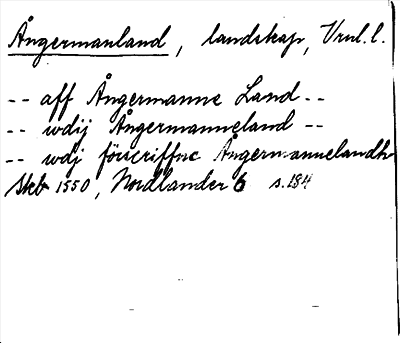 Ångermanland, landskap, Vrnl. l.
-- aff Ångermanne Land --
-- wdij Ångermanneland --
-- wdj föscriffne Ångermannelandh
Skeb 1550, Nordlander 6 s. 184